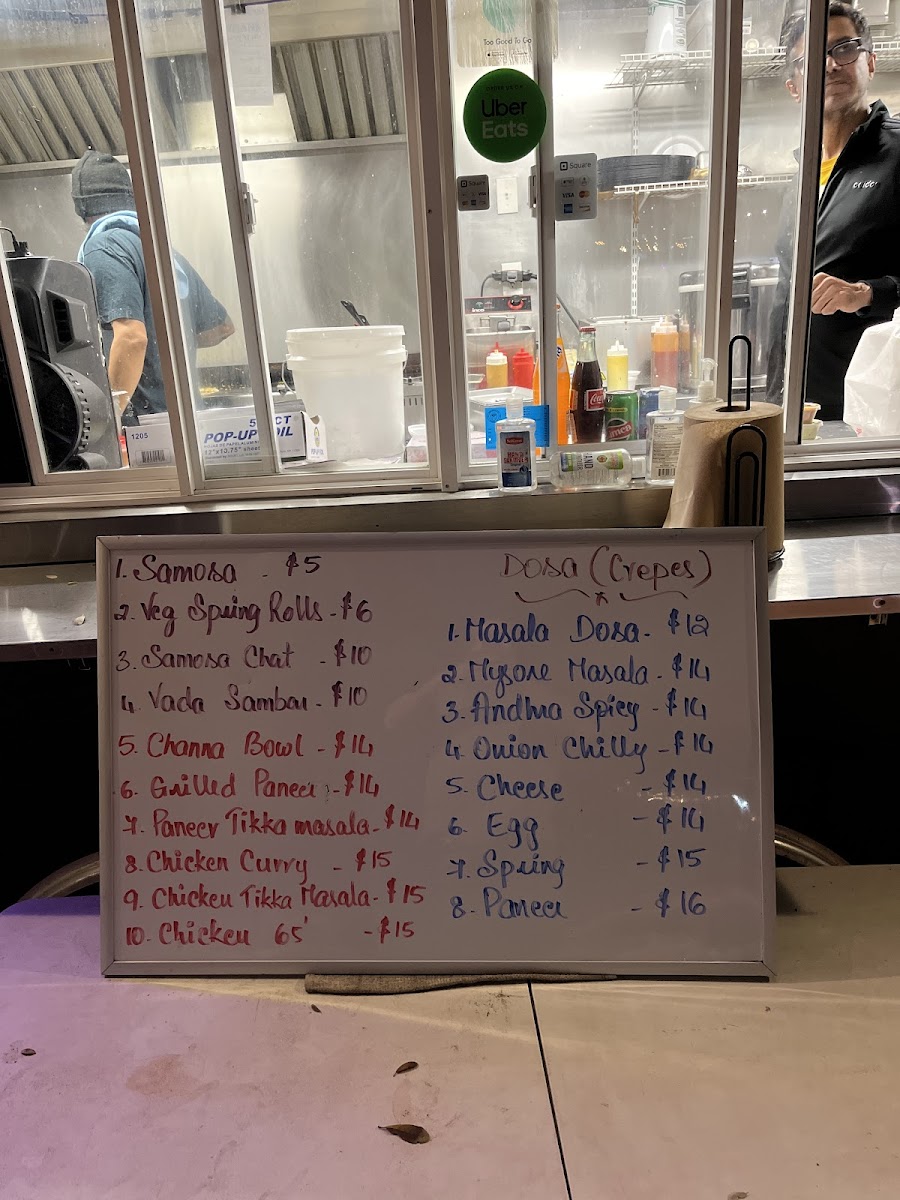 Too Good To Go
Uber
Eats
Square
Square
VISA
1205
POP-UP FOIL
12"x10.75" sheet
1. Samosa - $5
2. Veg Spring Rolls - $6
3. Samosa Chat - $10
4. Vada Sambar - $10
5. Channa Bowl - $14
6. Grilled Paneer - $14
7. Paneer Tikka masala - $14
8. Chicken Curry - $15
9. Chicken Tikka Masala - $15
10. Chicken 65' - $15
Dosa (Crepes)
1. Masala Dosa - $12
2. Mysore Masala - $14
3. Andhra Spicy - $14
4. Onion Chilly - $14
5. Cheese - $14
6. Egg - $14
7. Spring - $15
8. Paneer - $16